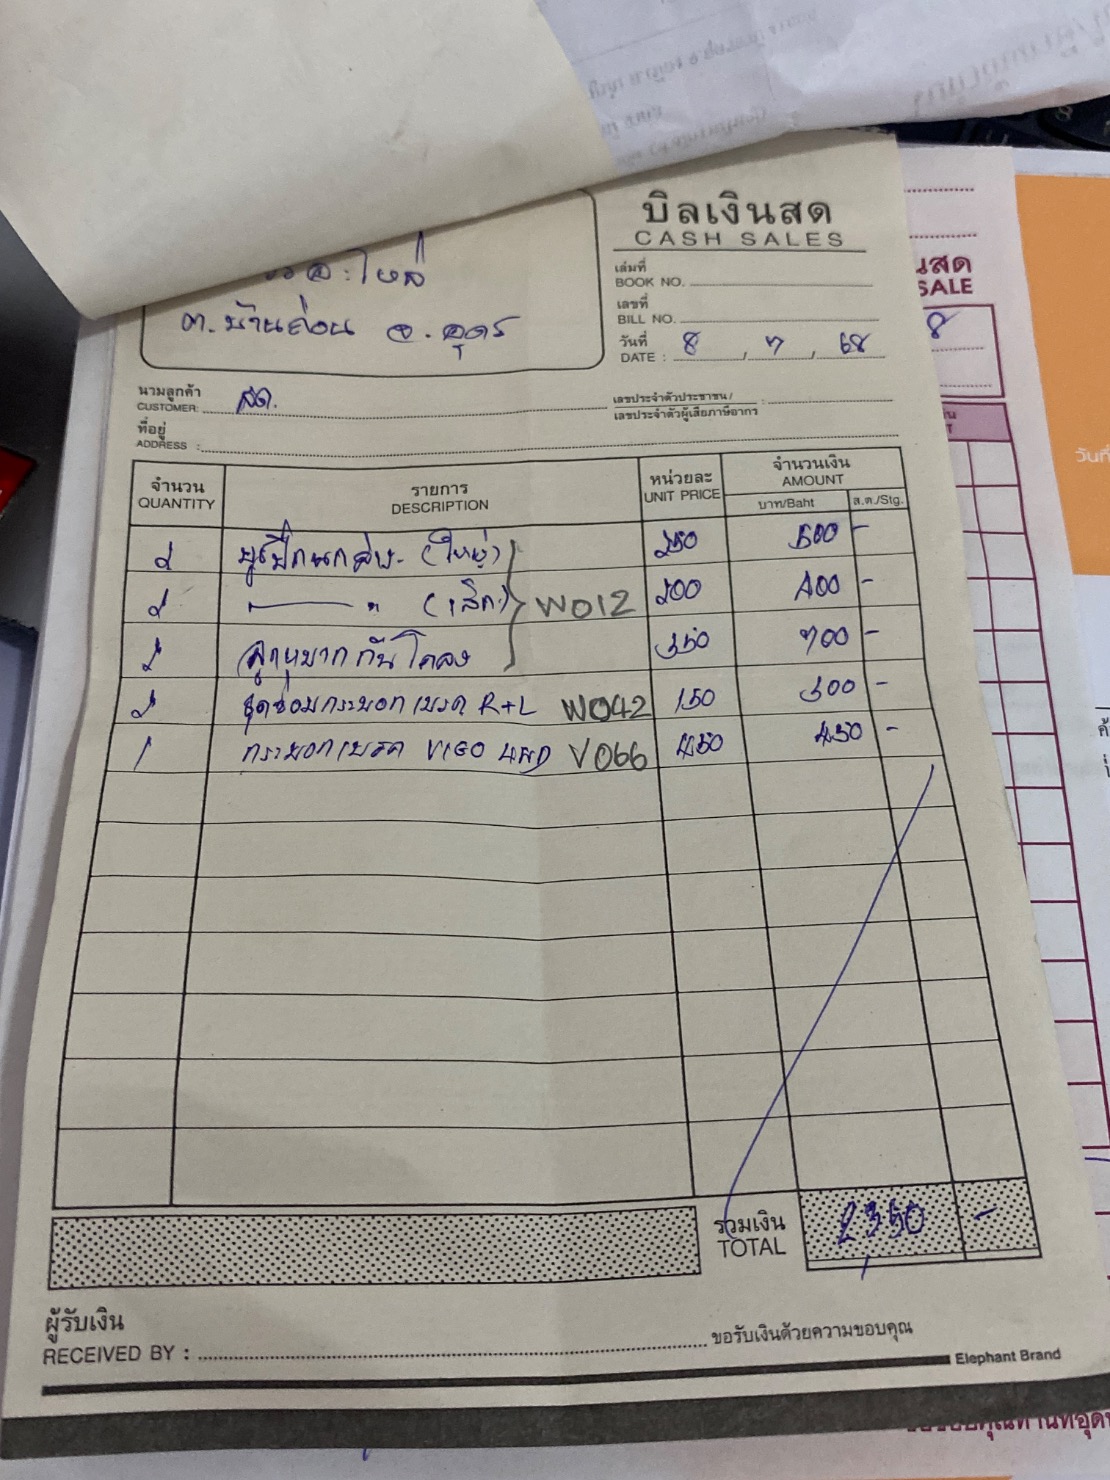 บิลเงินสด
CASH SALES
อะไหล่
ต.บ้านถ่อน จ.อุดร
เล่มที่
BOOK NO.
เลขที่
BILL NO.
วันที่
DATE : 8 / 7 / 68
นามลูกค้า
CUSTOMER: สด.
เลขประจำตัวประชาชน/
เลขประจำตัวผู้เสียภาษีอากร :
ที่อยู่
ADDRESS :
จำนวน รายการ หน่วยละ จำนวนเงิน
QUANTITY DESCRIPTION UNIT PRICE AMOUNT
บาท/Baht ส.ต./Stg.
2 บูชปีกนกล่าง (ใหญ่) 250 500 -
2 " (เล็ก) W012 200 400 -
2 ลูกหมากกันโคลง 350 700 -
2 ชุดซ่อมกระบอกเบรค R+L W042 150 300 -
1 กระบอกเบรค VIGO 4WD V066 450 450 -
รวมเงิน
TOTAL 2350 -
ผู้รับเงิน
RECEIVED BY :
ขอรับเงินด้วยความขอบคุณ
Elephant Brand
นสด
SALE
8
วันที่